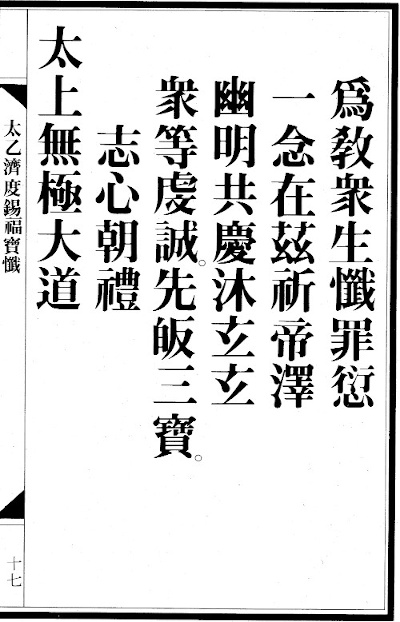 爲教衆生懺罪愆
一念在茲祈帝澤
幽明共慶沐玄玄
衆等虔誠。先皈三寶。
志心朝禮
太上無極大道
太乙濟度錫福寶懺
十七